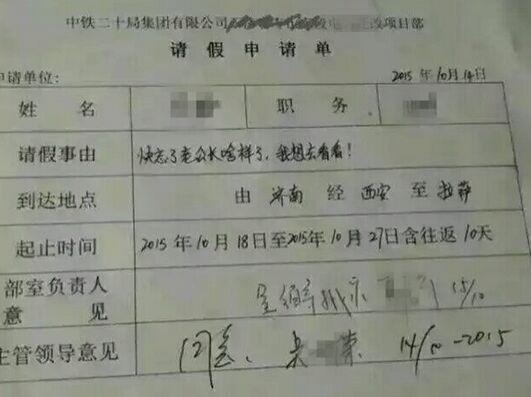 中铁二十局集团有限公司 改项目部
请假申请单
申请单位: 2015年10月14日
姓名 职务
请假事由 快忘了老公长啥样了,我想去看看!
到达地点 由 济南 经 西安 至 拉萨
起止时间 2015年10月18日至2015年10月27日含往返10天
部室负责人意见 15/10
主管领导意见 同意、 14/10-2015